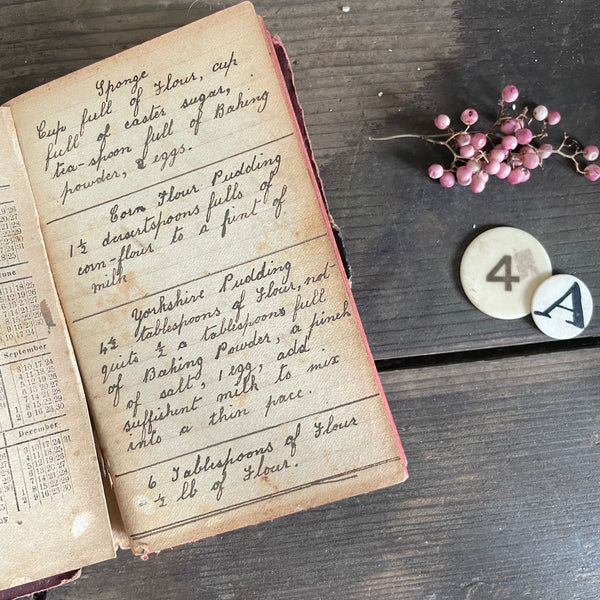 Sponge
Cup full of Flour, cup
full of caster sugar,
tea-spoon full of Baking
powder, eggs.
Corn Flour Pudding
1½ dersertspoons fulls of
corn-flour to a pint of
milk
Yorkshire Pudding
4½ tablespoons of Flour, not-
quits ½ a tablespoons full
of Baking Powder, a pinch
of salt, 1 egg, add
suffishent milk to mix
into a thin pace.
6 Tablespoons of Flour
- ½ lb of Flour.
June
September
December
4
A